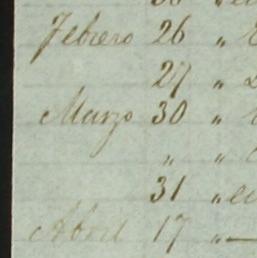 Febrero 26 "
27 "
Marzo 30 "
" "
31 "
Abril 17 " —